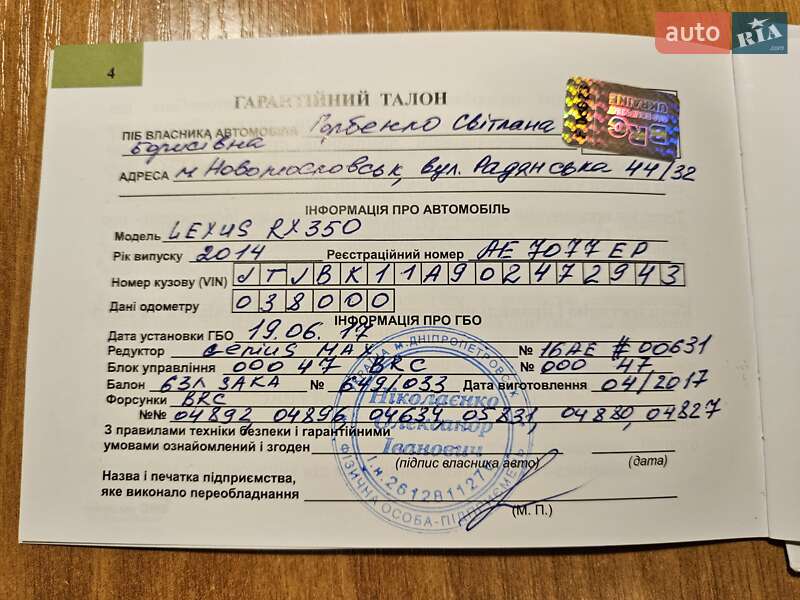 auto RIA.com
4
ГАРАНТІЙНИЙ ТАЛОН
BRC UKRAINE
ПІБ ВЛАСНИКА АВТОМОБІЛЯ Горбенко Світлана
Борисівна
АДРЕСА м Новомосковськ, вул. Радянська 44/32
ІНФОРМАЦІЯ ПРО АВТОМОБІЛЬ
Модель LEXUS RX350
Рік випуску 2014 Реєстраційний номер АЕ 7077 ЕР
Номер кузову (VIN) JTJBK11A902472943
Дані одометру 038000
ІНФОРМАЦІЯ ПРО ГБО
Дата установки ГБО 19.06.17
Редуктор Genius MAX № 16AE # 00631
Блок управління 000 47 BRC № 000 47
Балон 63л ЗАКА № 649/033 Дата виготовлення 04/2017
Форсунки BRC
№№ 04892 04896, 04634, 05831, 04880, 04827
З правилами техніки безпеки і гарантійними
умовами ознайомлений і згоден
(підпис власника авто) (дата)
Назва і печатка підприємства,
яке виконало переобладнання
(М. П.)
Ніколаєнко
Олександр
Іванович
УКРАЇНА м.ДНІПРОПЕТРОВСЬК
ФІЗИЧНА ОСОБА-ПІДПРИЄМЕЦЬ